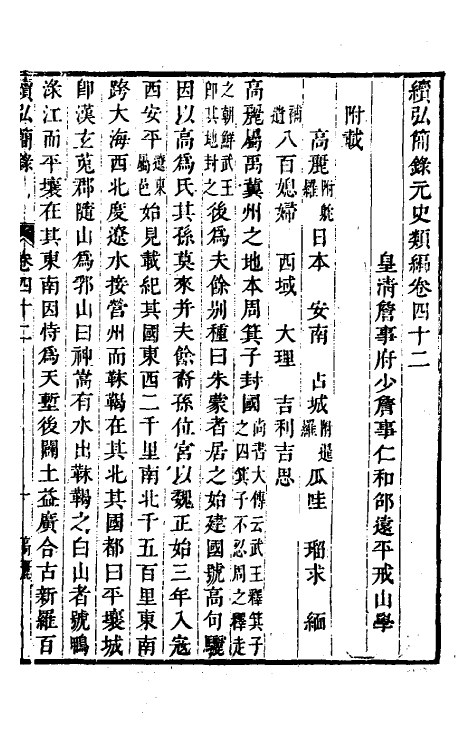 續弘簡錄元史類編卷四十二
皇清詹事府少詹事仁和邵遠平戒山學
附載
高麗附躭羅 日本 安南 占城附暹羅 瓜哇 瑠求 緬
補遺八百媳婦 西域 大理 吉利吉思
高麗屬禹冀州之地本周箕子封國尚書大傳云武王釋箕子之囚箕子不忍周之釋走
之朝鮮武王即其地封之後爲夫餘别種曰朱蒙者居之始建國號高句驪
因以高爲氏其孫莫來并夫餘裔孫位宮以魏正始三年入寇
西安平遼東屬邑始見載紀其國東西二千里南北千五百里東南
跨大海西北度遼水接營州而靺鞨在其北其國都曰平壤城
卽漢玄菟郡隨山爲郛山曰神嵩有水出靺鞨之白山者號鴨
淥江而平壤在其東南因恃爲天塹後闢土益廣合古新羅百
續弘簡錄 卷四十二